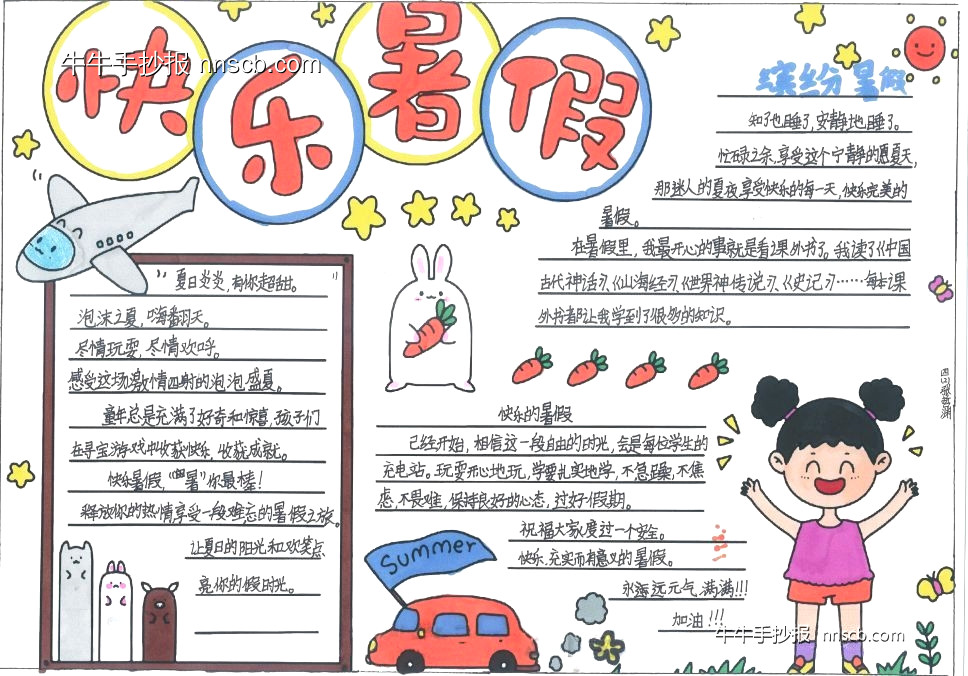 快乐暑假
牛牛手抄报 nnscb.com
缤纷暑假
知了也睡了,安静地睡了。
忙碌之余,享受这个宁静的夏天,
那迷人的夏夜,享受快乐的每一天,快乐完美的
暑假。
在暑假里,我最开心的事就是看课外书了。我读了《中国
古代神话》、《山海经》、《世界神传说》、《史记》……每本课
外书都让我学到了很多的知识。
"夏日炎炎,有你超甜。"
泡沫之夏,嗨翻天。
尽情玩耍,尽情欢呼。
感受这场激情四射的泡泡盛夏。
童年总是充满了好奇和惊喜,孩子们
在寻宝游戏中收获快乐,收获成就。
快乐暑假,"暑"你最棒!
释放你的热情享受一段难忘的暑假之旅。
让夏日的阳光和欢笑点
亮你的假时光。
快乐的暑假
已经开始,相信这一段自由的时光,会是每位学生的
充电站。玩耍开心地玩,学要扎实地学,不急躁,不焦
虑,不畏难,保持良好的心态,过好假期。
祝福大家度过一个安全。
快乐,充实而有意义的暑假。
永远远元气满满!!!
加油!!!
Summer
牛牛手抄报 nnscb.com